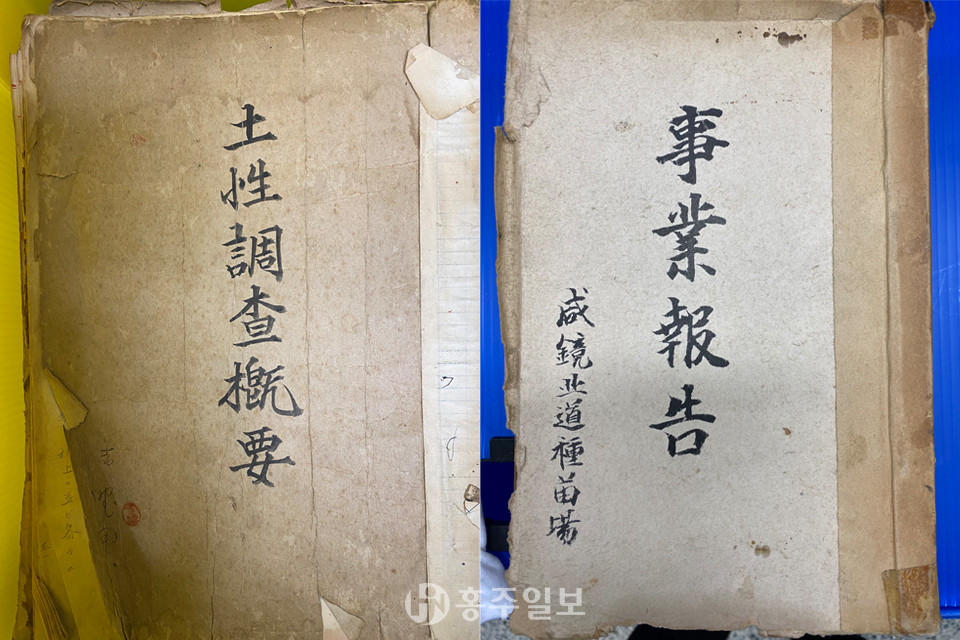 土性調査概要
事業報告
咸鏡北道種苗場
홍주일보